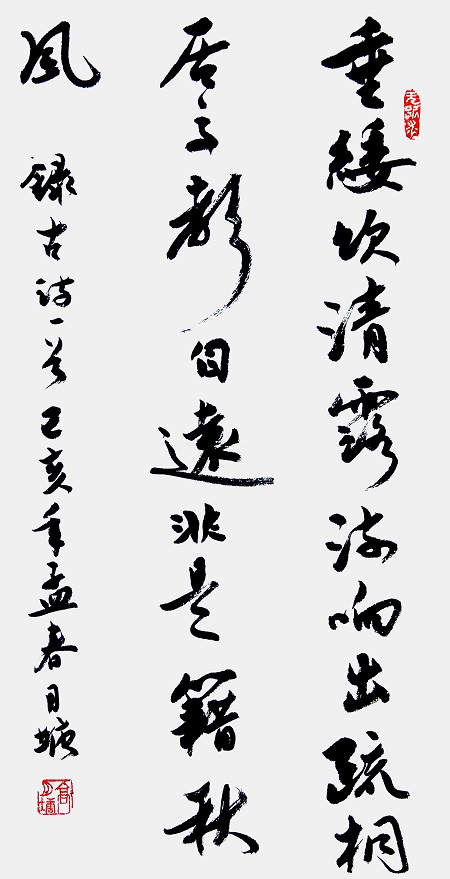 垂緌饮清露流响出疏桐
居高聲自遠非是籍秋
風
錄古詩一首己亥年孟春月塘